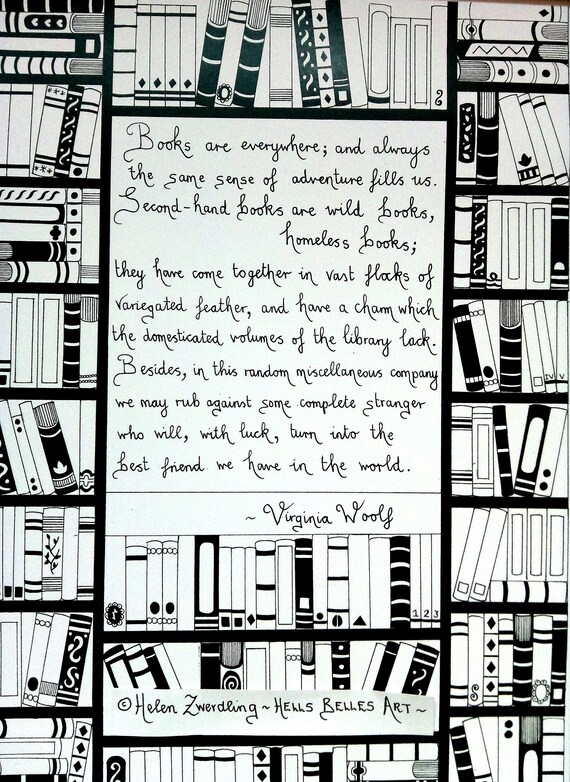 Books are everywhere; and always
the same sense of adventure fills us.
Second-hand books are wild books,
homeless books;
they have come together in vast flocks of
variegated feather, and have a charm which
the domesticated volumes of the library lack.
Besides, in this random miscellaneous company
we may rub against some complete stranger
who will, with luck, turn into the
best friend we have in the world.
~ Virginia Woolf
IV V
1 2 3
© Helen Zwerdling ~ Hells Belles Art ~